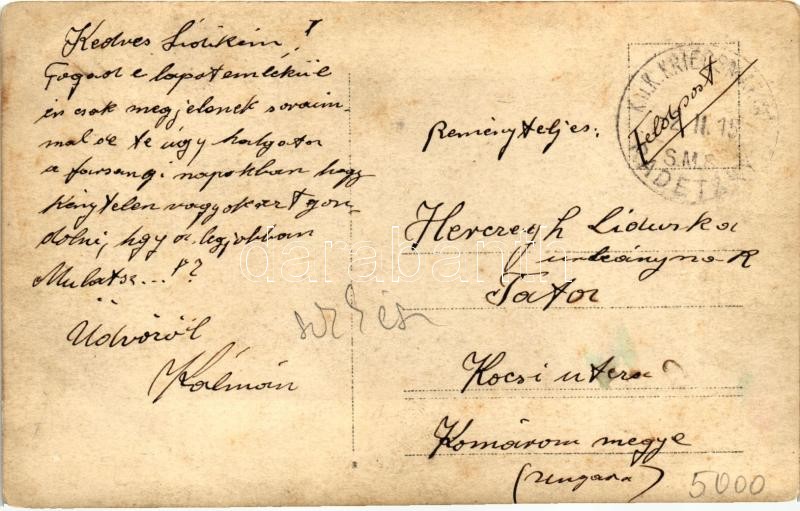 Kedves Lidikém!
Fogad e lapot emlékül
én csak megjelenek soraim-
mal de te úgy halgatsz
a farsangi napokban hogy
kénytelen vagyok azt gon-
dolni, hgy a legjobban
Mulatsz...?
Üdvözöl
Kálmán
K.u.K. KRIEGSMARINE
Feldpost
II. 15
S.M.S.
Reményteljes:
Herczegh Liduska
urleánynak
Tata
Kocsi utcza
Komárom megye
(Ungarn)
5000
darabanth